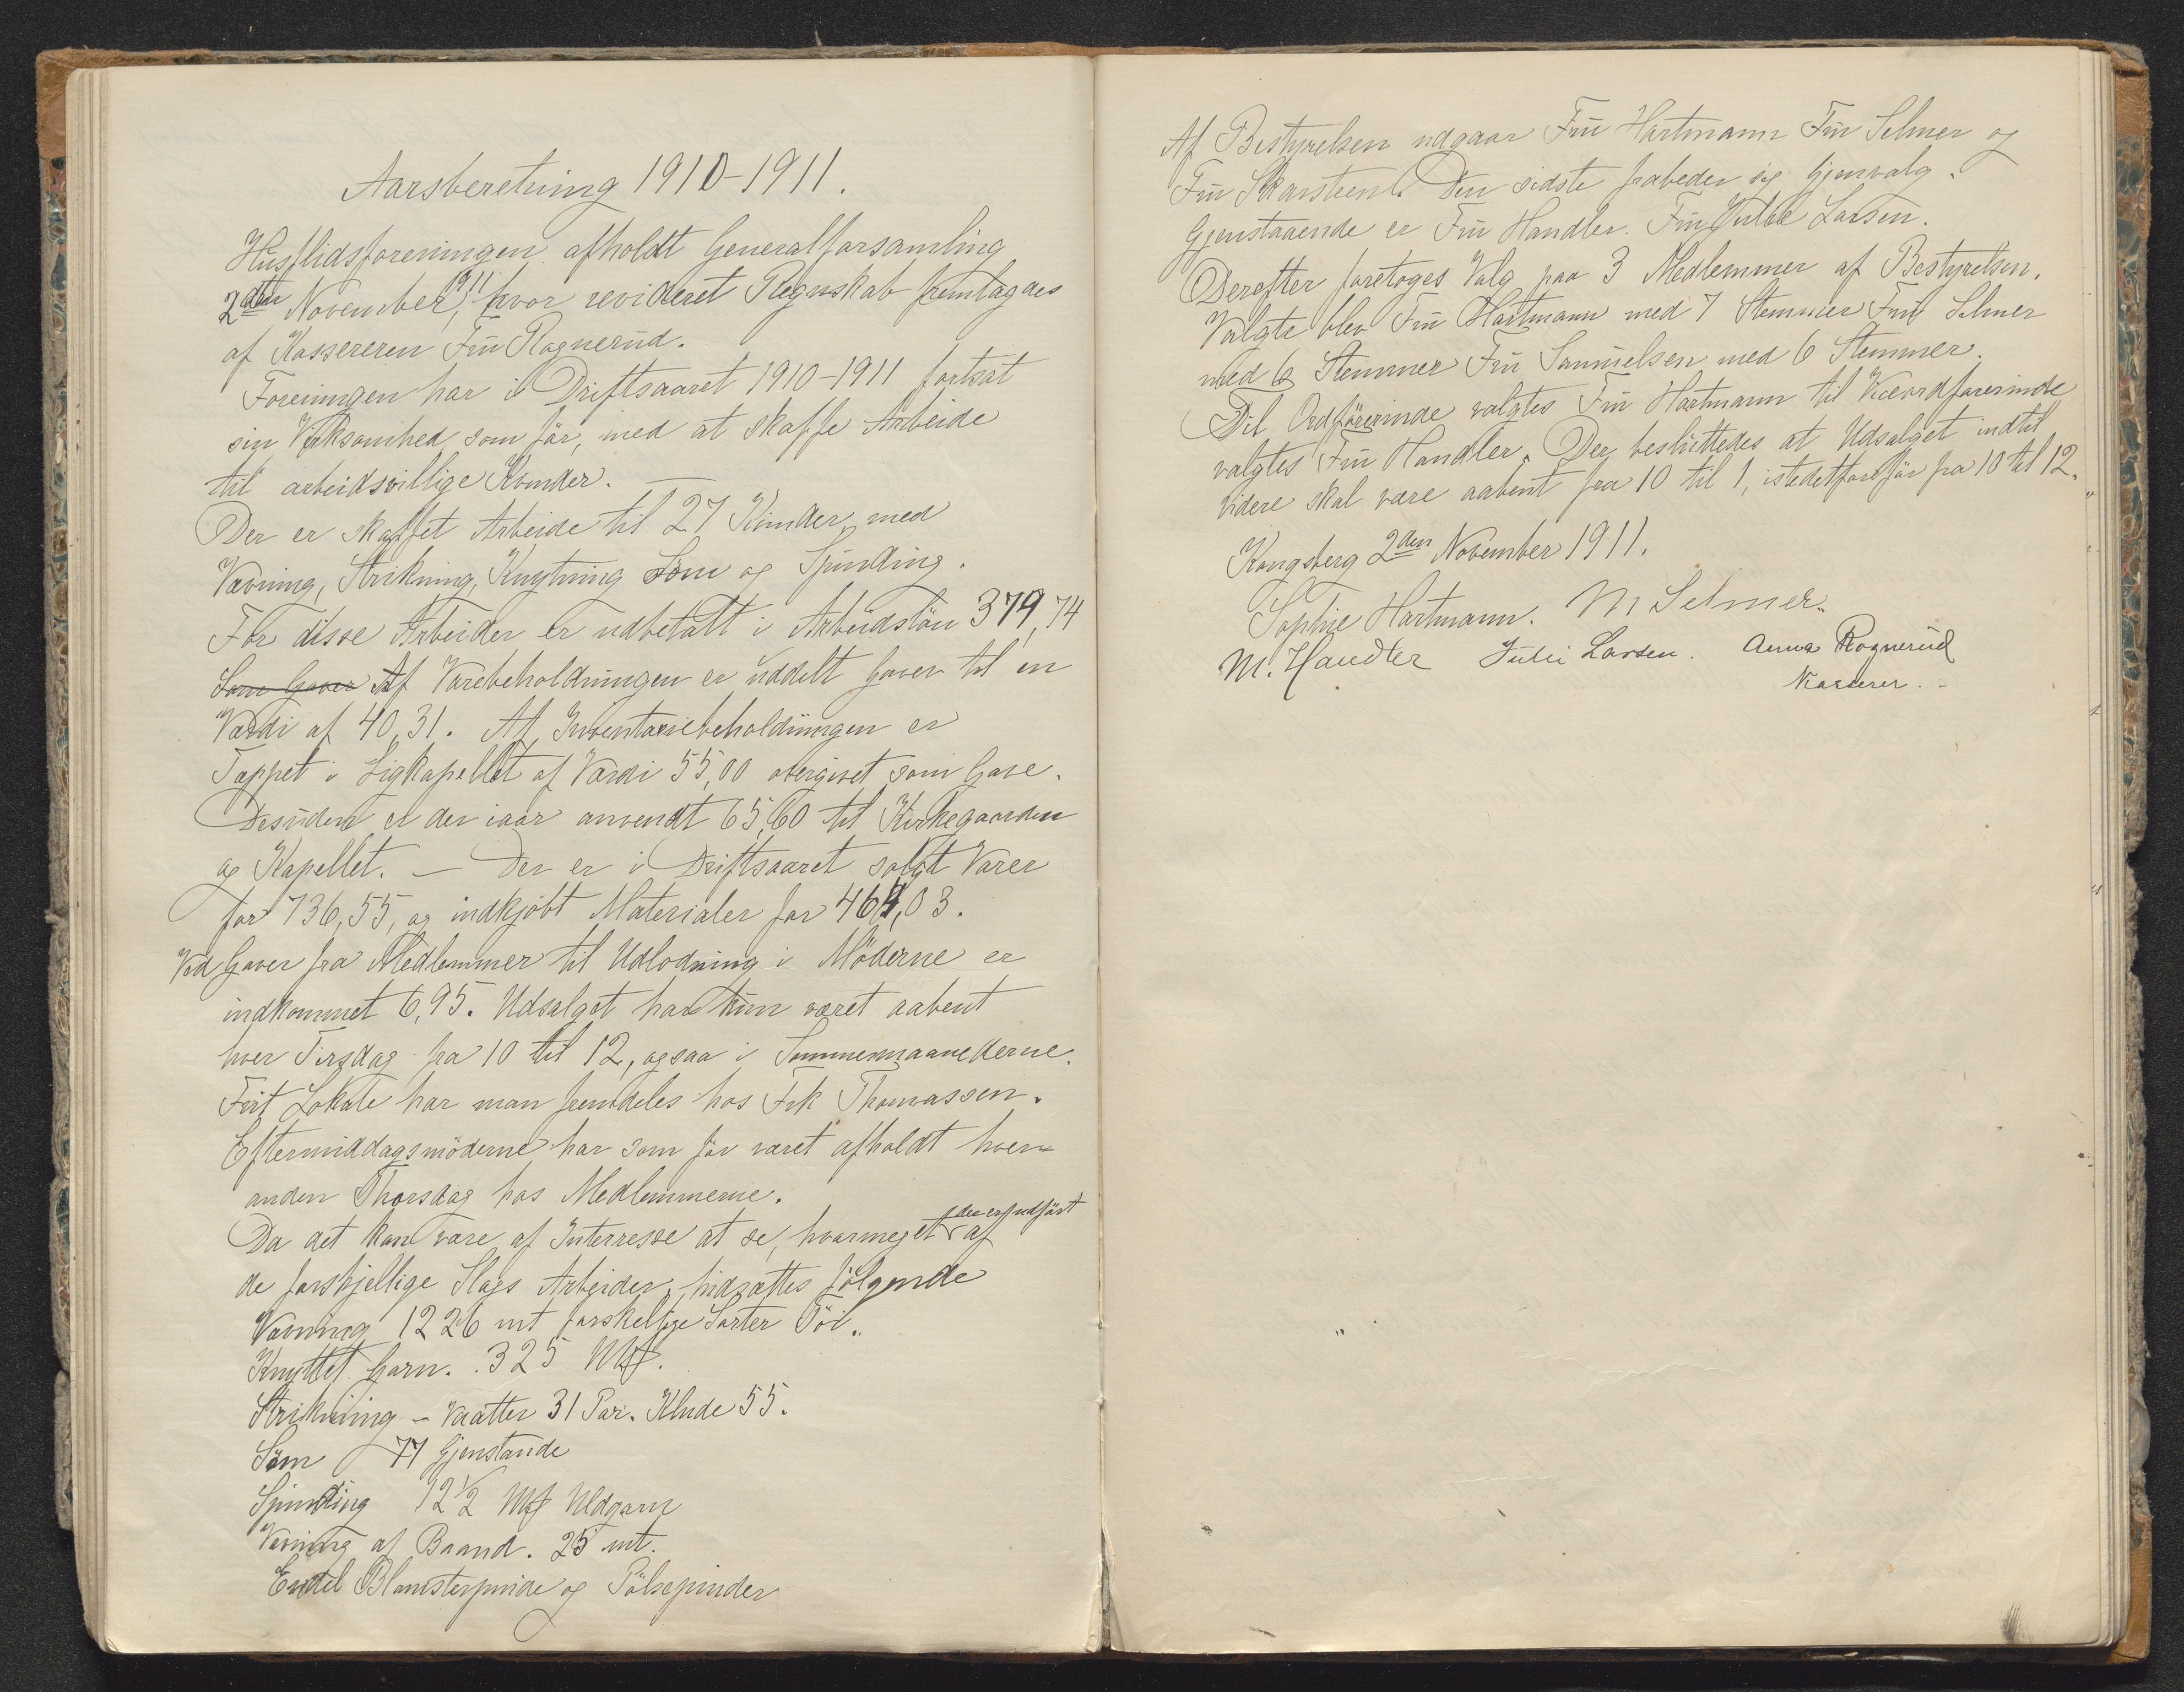 Aarsberetning 1910-1911.
Husflidsforeningen afholdt Generalforsamling
2den November 1911, hvor revideret Regnskab fremlagdes
af Kassereren Fru Rognerud.
Foreningen har i Driftsaaret 1910-1911 fortsat
sin Virksomhed som før, med at skaffe Arbeide
til arbeidsvillige Kvinder. —
Der er skaffet Arbeide til 27 Kvinder, med
Vævning, Strikning, Knytning Søm og Spinding.
For disse Arbeider er udbetalt i Arbeidsløn 379,74
Som Gaver Af Varebeholdningen er uddelt Gaver til en
Værdi af 40,31. Af Inventariebeholdningen er
Tæppet i Ligkapellet af Værdi 55,00 overgivet som Gave.
Desuden er der iaar anvendt 65,60 til Kirkegaarden
og Kapellet. — Der er i Driftsaaret solgt Varer
for 736,55, og indkjøbt Materialer for 464,03.
Ved Gaver fra Medlemmer til Udlodning i Møderne er
indkommet 6,95. Udsalget har kun været aabent
hver Tirsdag fra 10 til 12, ogsaa i Sommermaanederne.
Frit Lokale har man fremdeles hos Frk Thomassen.
Eftermiddagsmøderne har som før været afholdt hver
anden Thorsdag hos Medlemmerne.
Da det kan være af Interresse at se, hvormeget der er udført af
de forskjellige Slags Arbeider, hidsættes følgende
Vævning 1226 mt forskellige Sorter Tøi.
Knyttet Garn. 325
Strikning - Vaatter 31 Par. Klude 55.
Søm 77 Gjenstande
Spinding 12 1/2 Uldgarn
Vævning af Baand. 25 mt.
Endel Blomsterpinde og Pølsepinder
Af Bestyrelsen udgaar Fru Hartmann Fru Selmer og
Fru Skarsteen. Den sidste frabeder sig Gjenvalg.
Gjenstaaende er Fru Handler. Fru Julie Larsen.
Derefter foretoges Valg paa 3 Medlemmer af Bestyrelsen.
Valgte blev Fru Hartmann med 7 Stemmer Fru Selmer
med 6 Stemmer Fru Samuelsen med 6 Stemmer.
Til Ordførerinde valgtes Fru Hartmann til Viceordførerinde
valgtes Fru Handler. Der besluttedes at Udsalget indtil
videre skal være aabent fra 10 til 1, istedetfor før fra 10 til 12.
Kongsberg 2den November 1911.
Sophie Hartmann. M Selmer.
M. Handler Julie Larsen. Anna Rognerud
Kasserer. -